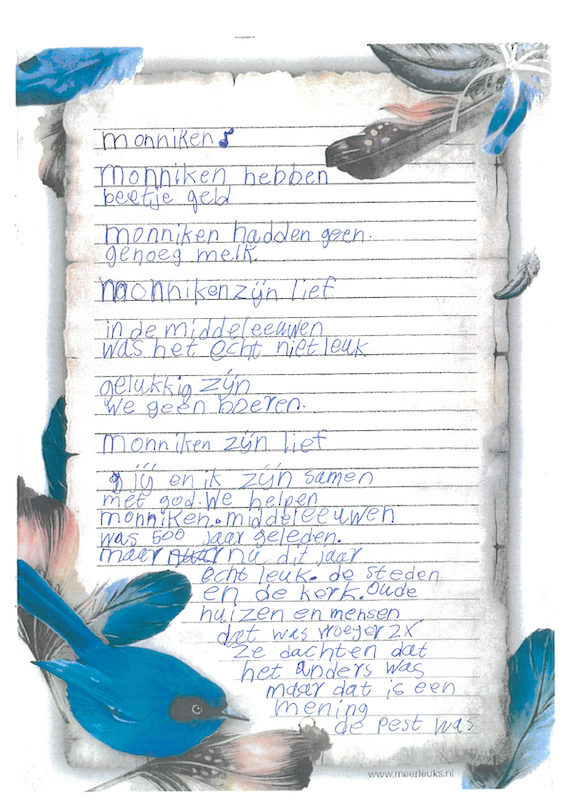 monniken
monniken hebben
beetje geld
monniken hadden geen.
genoeg melk.
monniken zijn lief
in de middeleeuwen
was het echt niet leuk
gelukkig zijn
we geen boeren.
monniken zijn lief
jij en ik zijn samen
met god. We helpen
monniken. middeleeuwen
was 500 jaar geleden.
maar nu dit jaar
echt leuk. de steden
en de kerk. Oude
huizen en mensen
dat was vroeger 2x
Ze dachten dat
het anders was
maar dat is een
mening
de pest was
www.meerleuks.nl